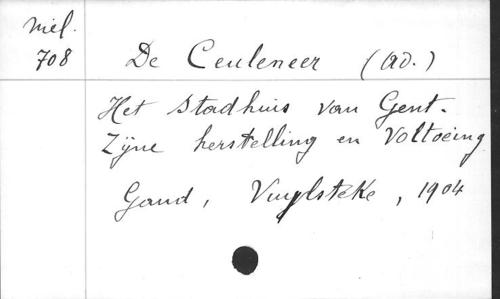 Mel.
708
De Ceuleneer (Ad.)
Het Stadhuis van Gent.
Zijne herstelling en Voltoeing
Gand, Vuylsteke, 1904